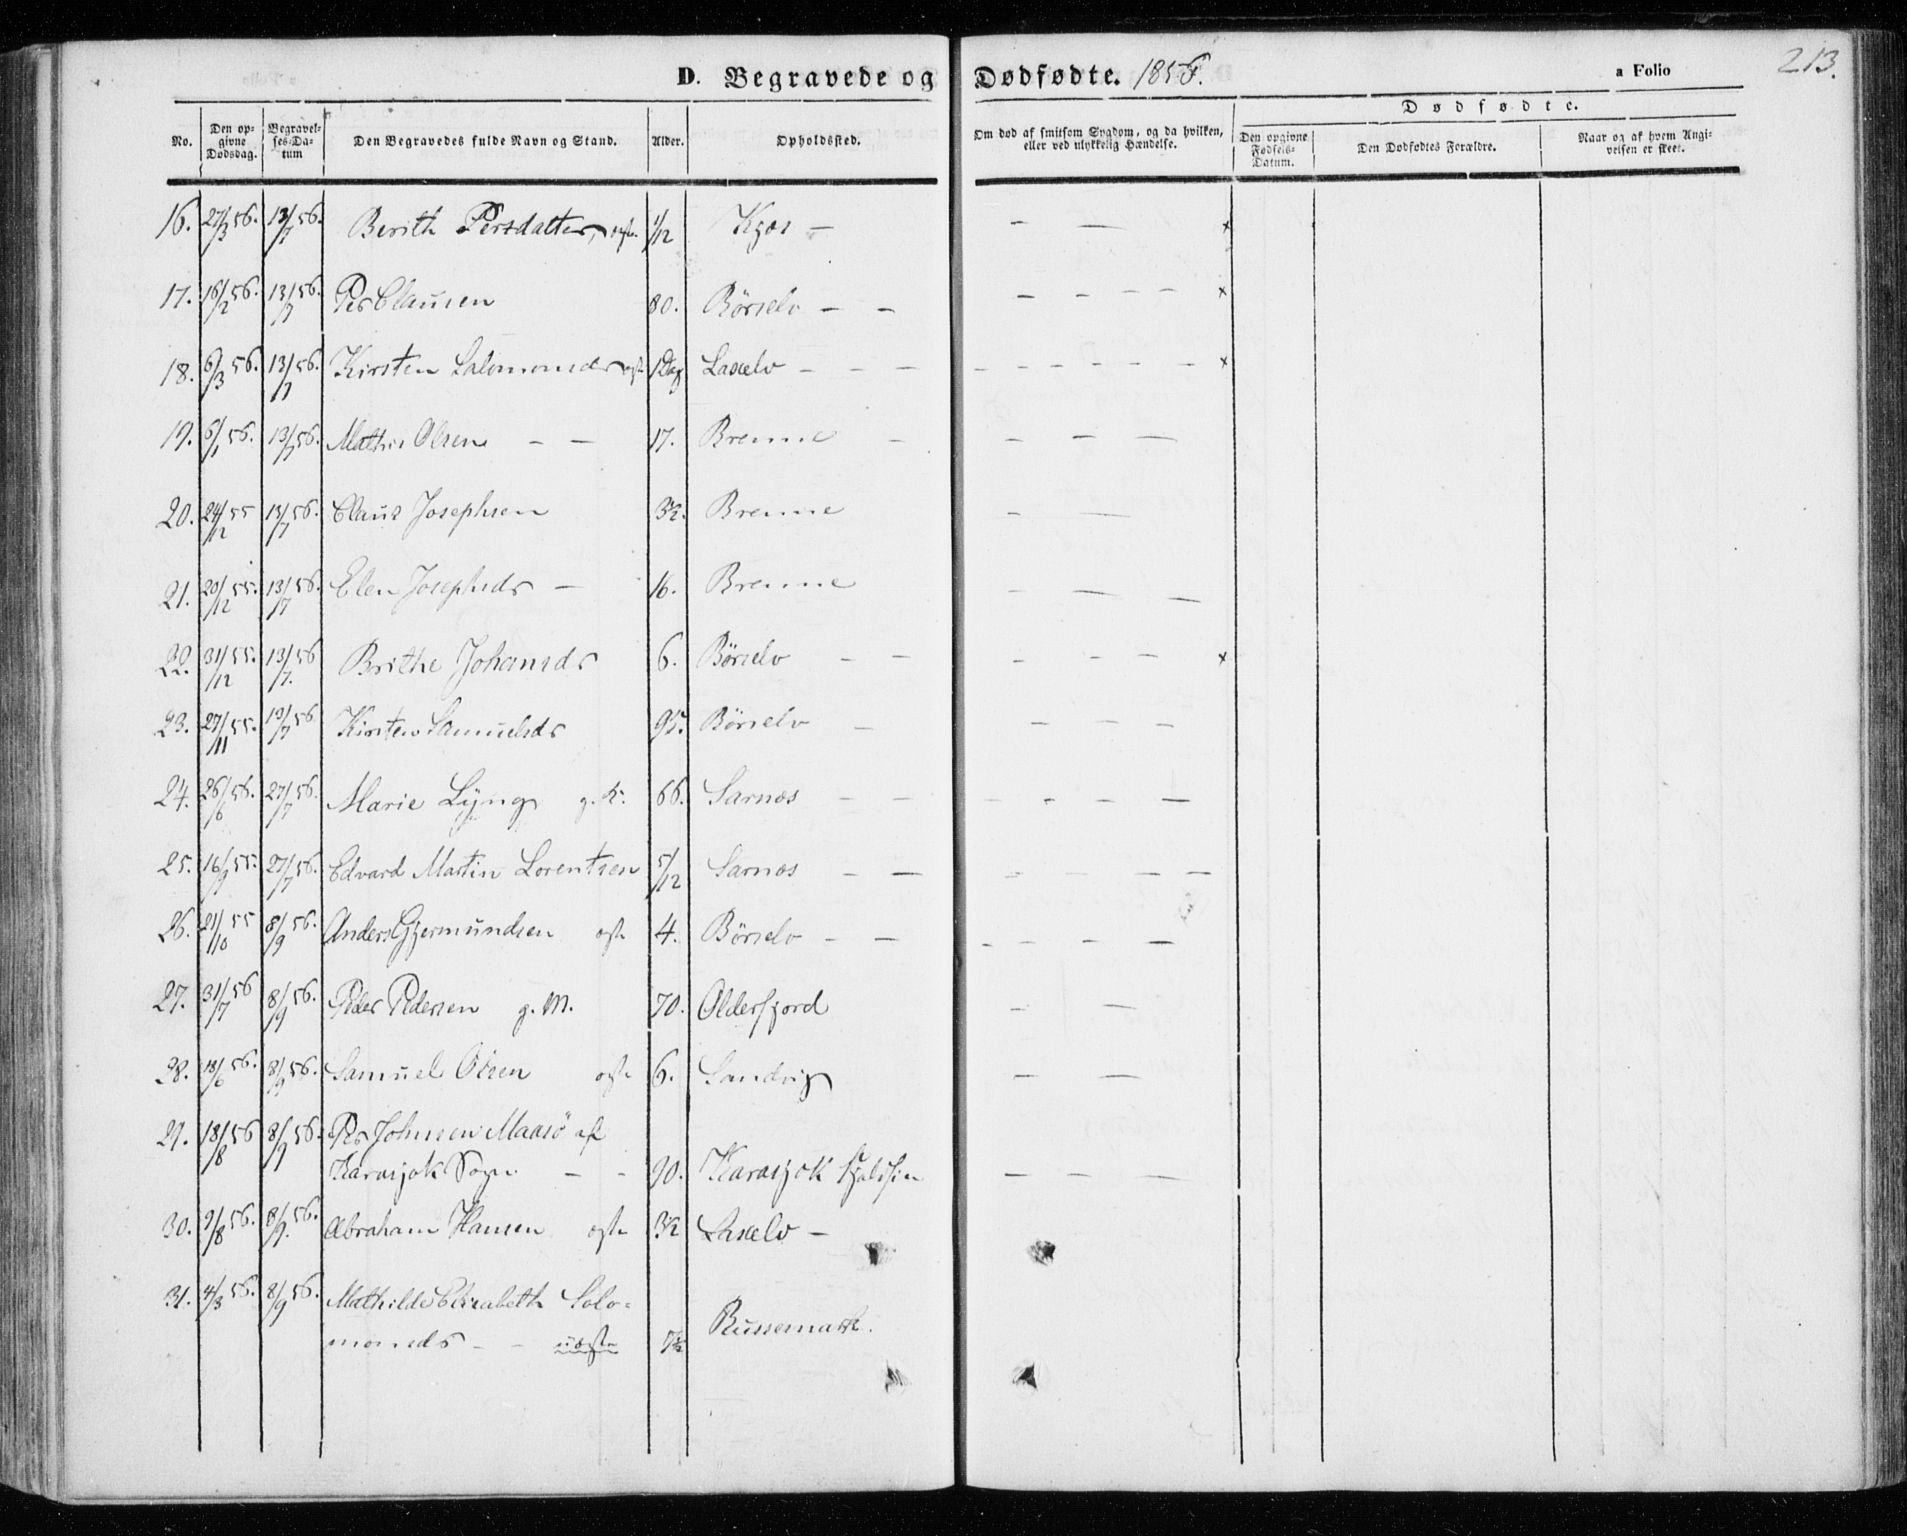 D. Begravede og Dødfødte. 1856.
a Folio 213.
No.
Den opgivne Dødsdag.
Begravelses-Datum
Den Begravedes fulde Navn og Stand.
Alder.
Opholdssted.
Om død af smitsom Sygdom, og da hvilken, eller ved ulykkelig Hændelse.
Dødfødte.
Den opgivne Fødsels-Datum.
Den Dødfødtes Forældre.
Naar og af hvem Angivelsen er skeet.
16. 27/3 56. 13/7 56. Berith Persdatter, 1/12 — — — x
17. 16/2 56. 13/7 56. Per Clausen 80. Börselv — — — — — — x
18. 6/3 56. 13/7 56. Kirsten Salomonsdr 1 Dag Laxelv — — — — — — — — x
19. 6/1 56. 13/7 56. Mathis Olsen — — 17. Brenne — — — —
20. 24/12 55 13/7 56. Claus Josephsen 3½. Brenne — —
21. 20/12 55. 13/7 56 Elen Josephsdr — 16. Brenne — — —
22. 31/12 55. 13/7 56 Brithe Johansdr 6. Börselv — — — — — x
23. 27/11 55. 19/7 56 Kirsten Samuelsdr 95. Börselv — — — —
24. 26/6 56. 27/7 56. Marie Lyng g. K. 66. Sarnæs — — — — — —
25. 16/9 55. 27/7 56. Edvard Martin Lorentsen 5/12 Sarnæs — — — — — —
26. 21/10 55 8/9 56. Anders Gjermundsen ægte 4. Börselv — — — — — —
27. 31/7 56 8/9 56. Peder Pedersen g. M. 70. Olderfjord — —
28. 18/6 56. 8/9 56. Samuel Olsen ægte 6. Sandvig — —
29. 18/8 56 8/9 56. Per Johnsen Maasö af
Karasjok Sogn — — 90. Karasjok — — —
30. 9/8 56. 8/9. 56. Abraham Hansen ægte 3½ Laxelv —
31. 4/3 56. 8/9 56. Mathilde Elisabeth Solo-
monsdr — — uægte 7½ Russemark.